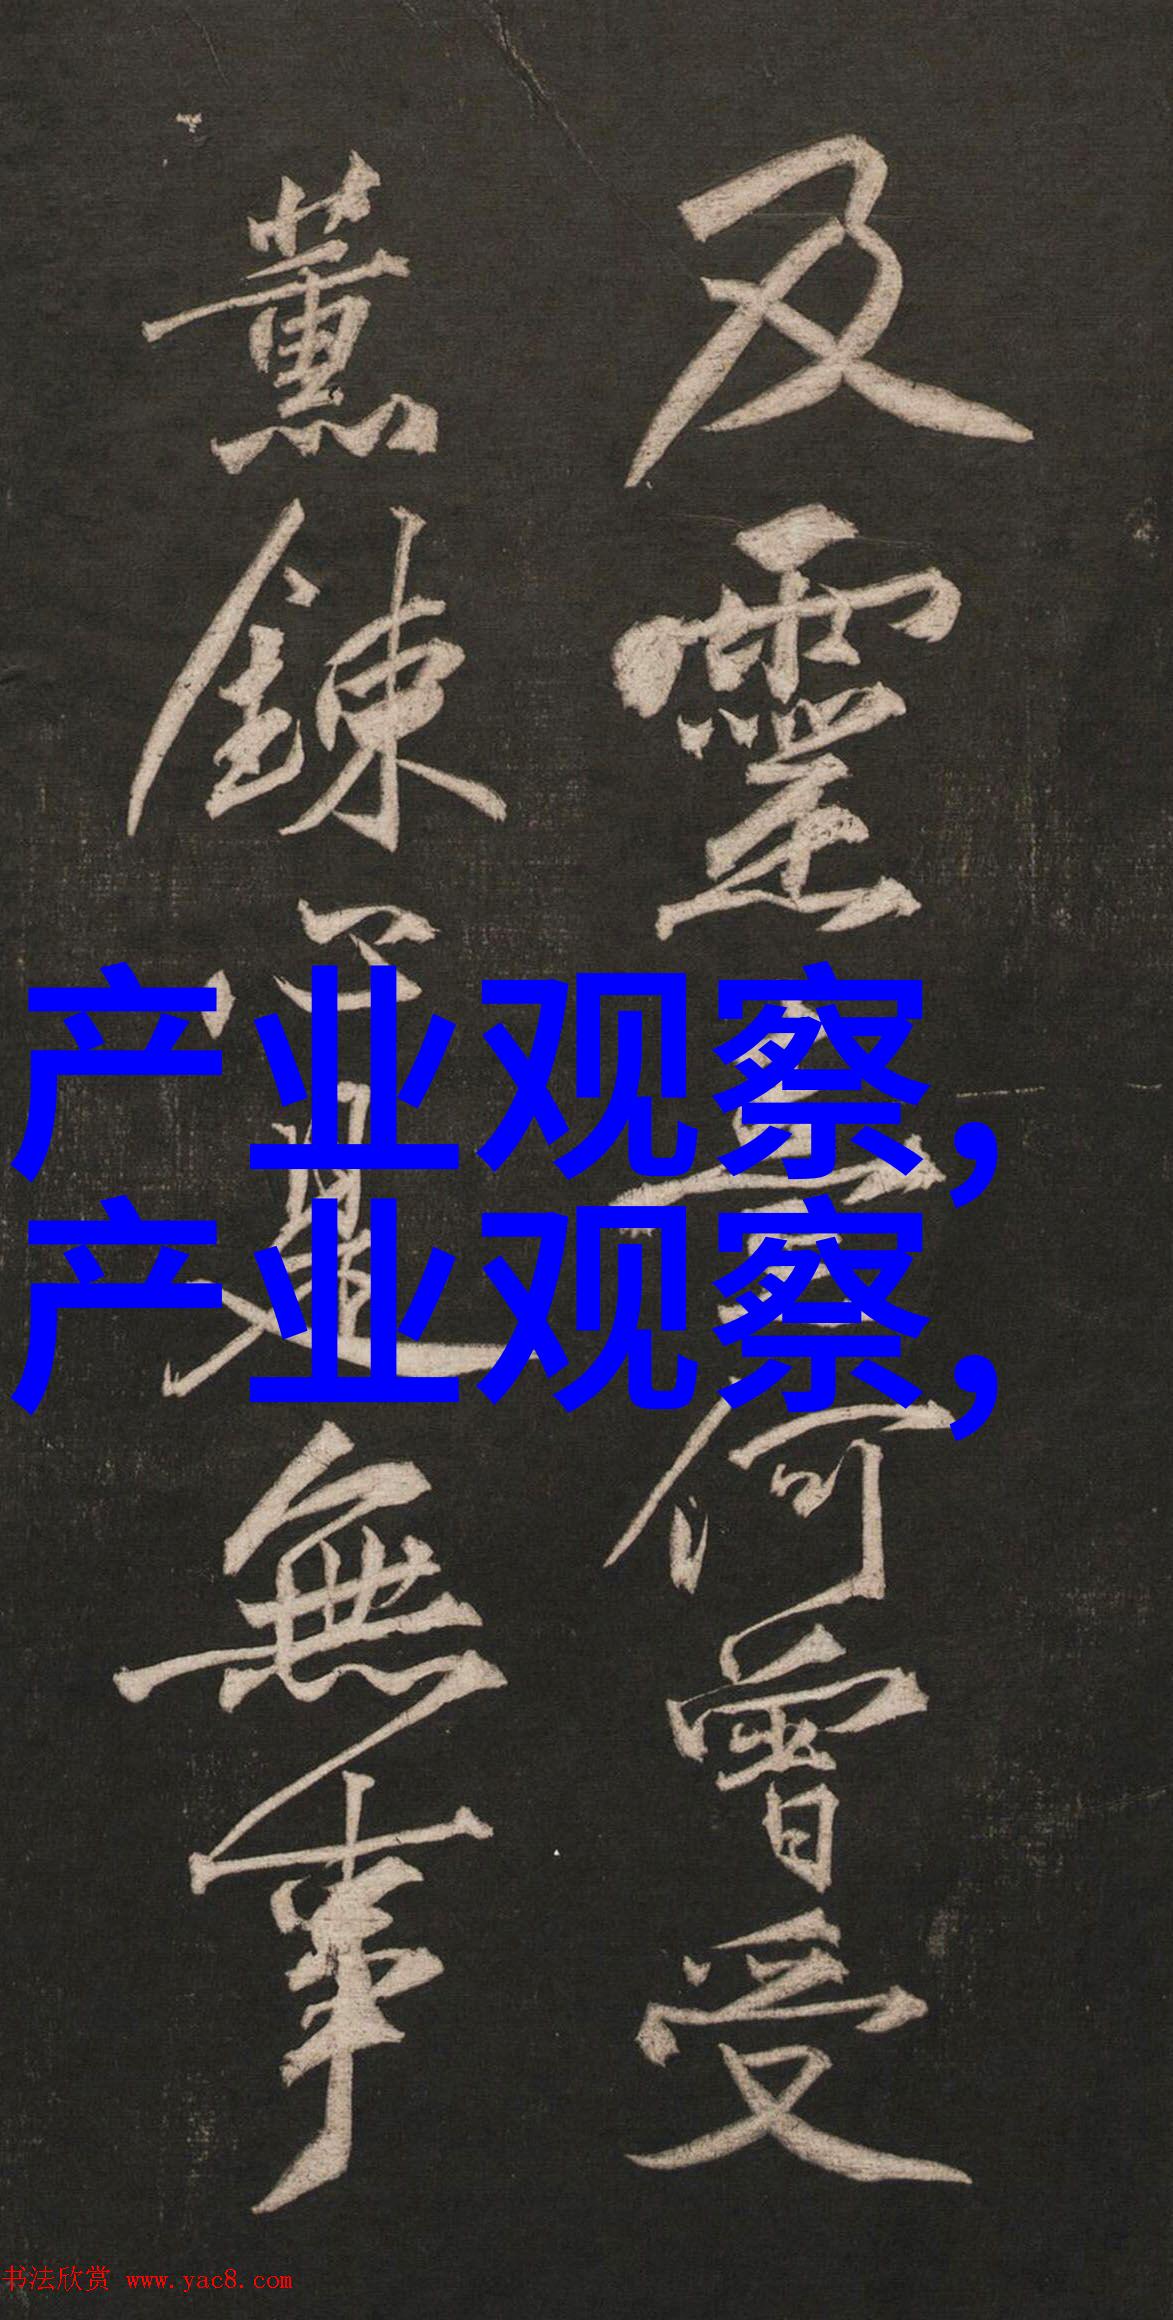 及靈何曾受
薰鍊心是無事
产业观察,
产业观察,
书法欣赏 www.yac8.com